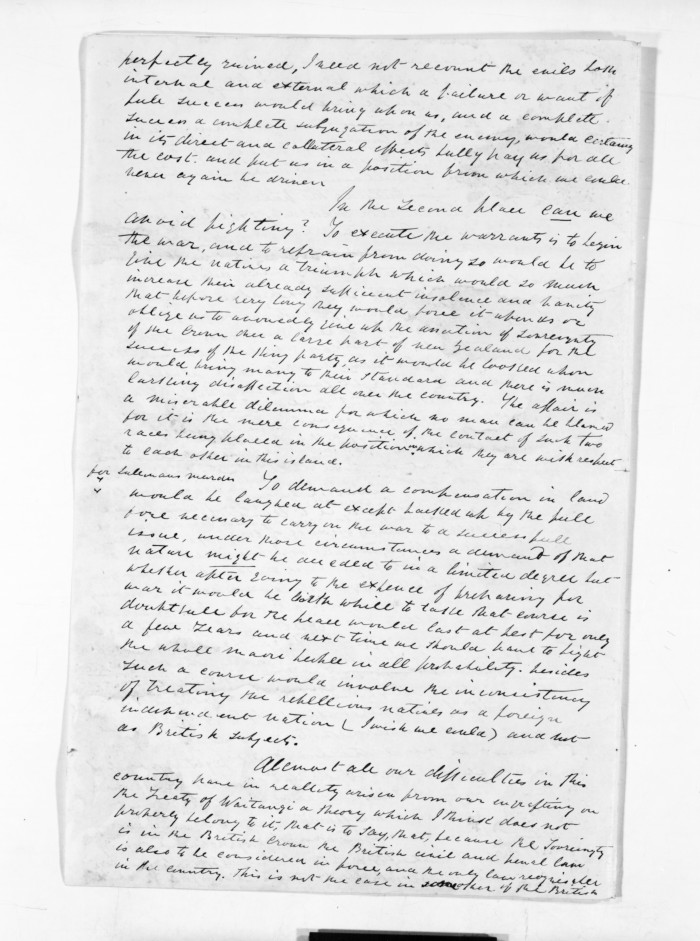 perfectly ruined, I need not recount the evils both
internal and external which a failure or want of
full success would bring upon us, and a complete
success a complete subjugation of the enemy, would certainly
in its direct and collateral effects fully pay us for all
the cost. and put us in a position from which we could
never again be driven
In the second place can we
avoid fighting? To execute the warrants is to begin
the war, and to refrain from doing so would be to
give the natives a triumph which would so much
increase their already sufficient insolence and vanity
that before very long they would force it upon us or
oblige us to avowedly give up the assertion of Sovereignty
of the Crown over a large part of new Zealand for the
success of the King party, as it would be looked upon
would bring many to their standard and there is much
lurking disaffection all over the country. The affair is
a miserable dilemma for which no man can be blamed
for it is the mere consequence of the contact of such two
races being placed in the position in which they are with respect
to each other in this island.
for Sullivans murder To demand a compensation in land
would be laughed at except backed up by the full
force necessary to carry on the war to a successfull
issue, under those circumstances a demand of that
nature might be acceded to in a limited degree but
whether after going to the expence of preparing for
war it would be worth while to take that course is
doubtfull for the peace would last at best for only
a few years and next time we should have to fight
the whole maori people in all probability. besides
such a course would involve the inconsistency
of treating the rebellious natives as a foreign
independent nation (I wish we could) and not
as British subjects.
Allmost all our difficulties in this
country have in reallity arisen from our engrafting on
the Treaty of Waitangi a theory which I think does not
properly belong to it, that is to say, that, because the Sovereignty
is in the British Crown the British civil and penal law
is also to be considered in force, and the only law recognisable
in the country. This is not the case in other of the British